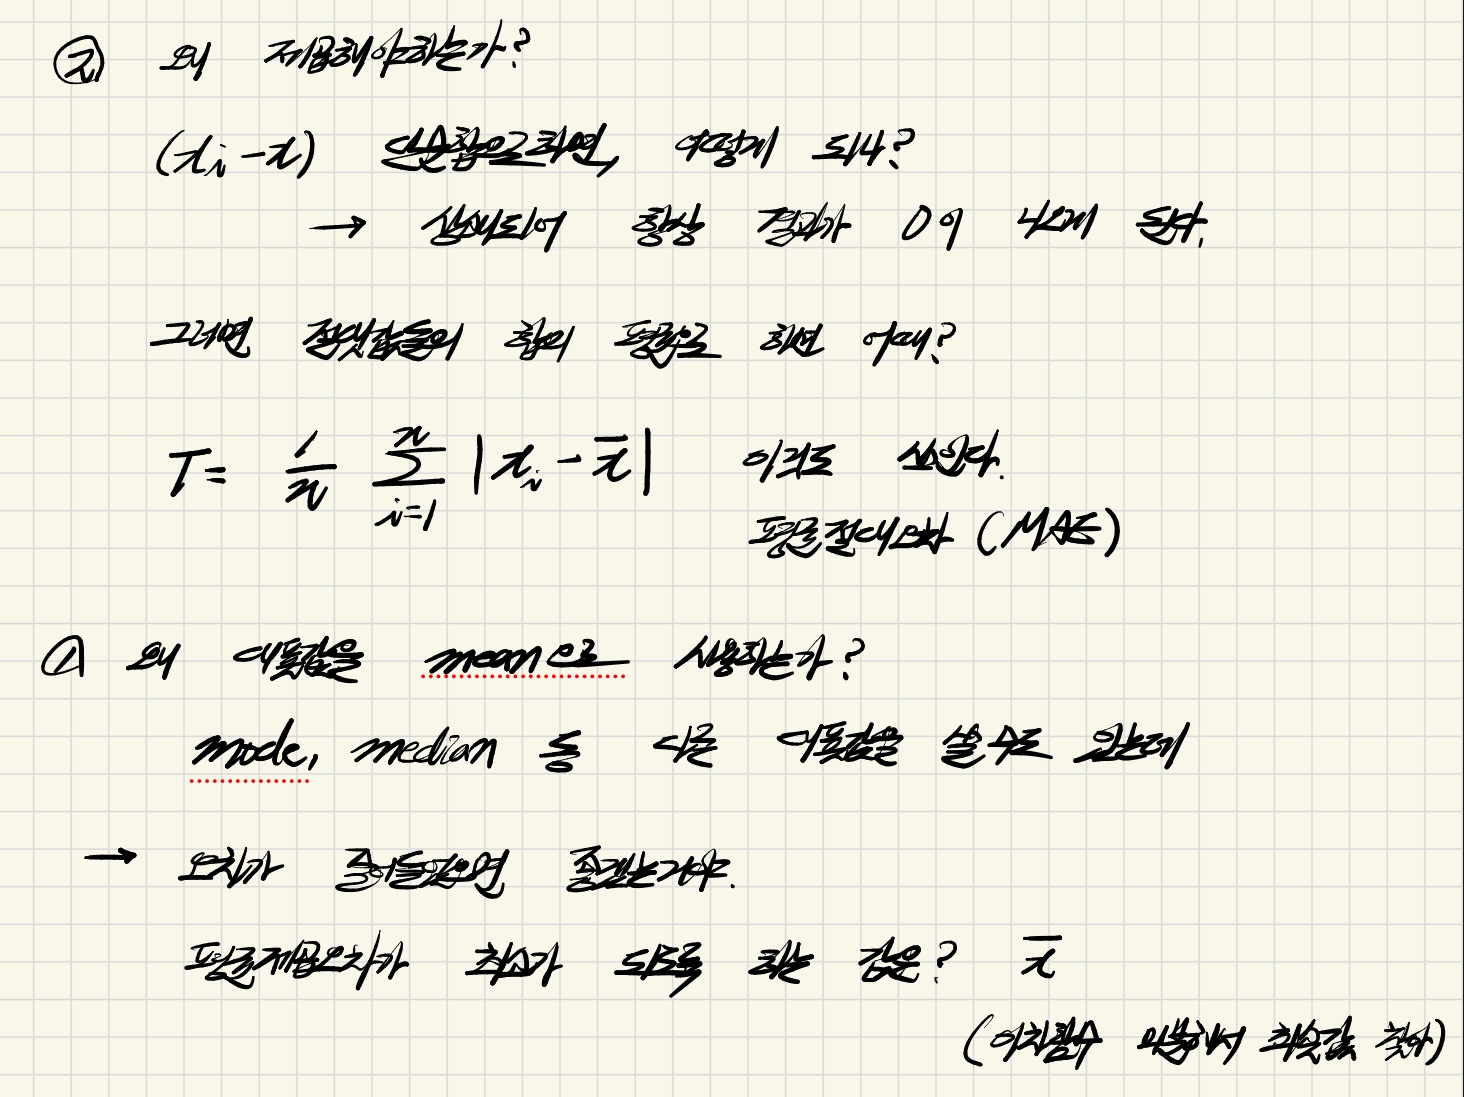 ② 왜 제곱해야하는가?
(xᵢ - x) 단순합으로하면, 어떻게 되나?
→ 상쇄되어 항상 결과가 0이 나오게 된다.
그러면 절댓값들의 합의 평균으로 하면 어때?
T = 1/n ∑ⁿᵢ₌₁ |xᵢ - x̄| 이것도 쓰인다.
평균절대오차 (MAE)
① 왜 대푯값을 mean으로 사용하는가?
mode, median 등 다른 대푯값을 쓸 수도 있는데
→ 오차가 줄어들었으면 좋겠는거야.
평균제곱오차가 최소가 되도록 하는 값은? x̄
(이차함수 미분해서 최솟값 찾아)